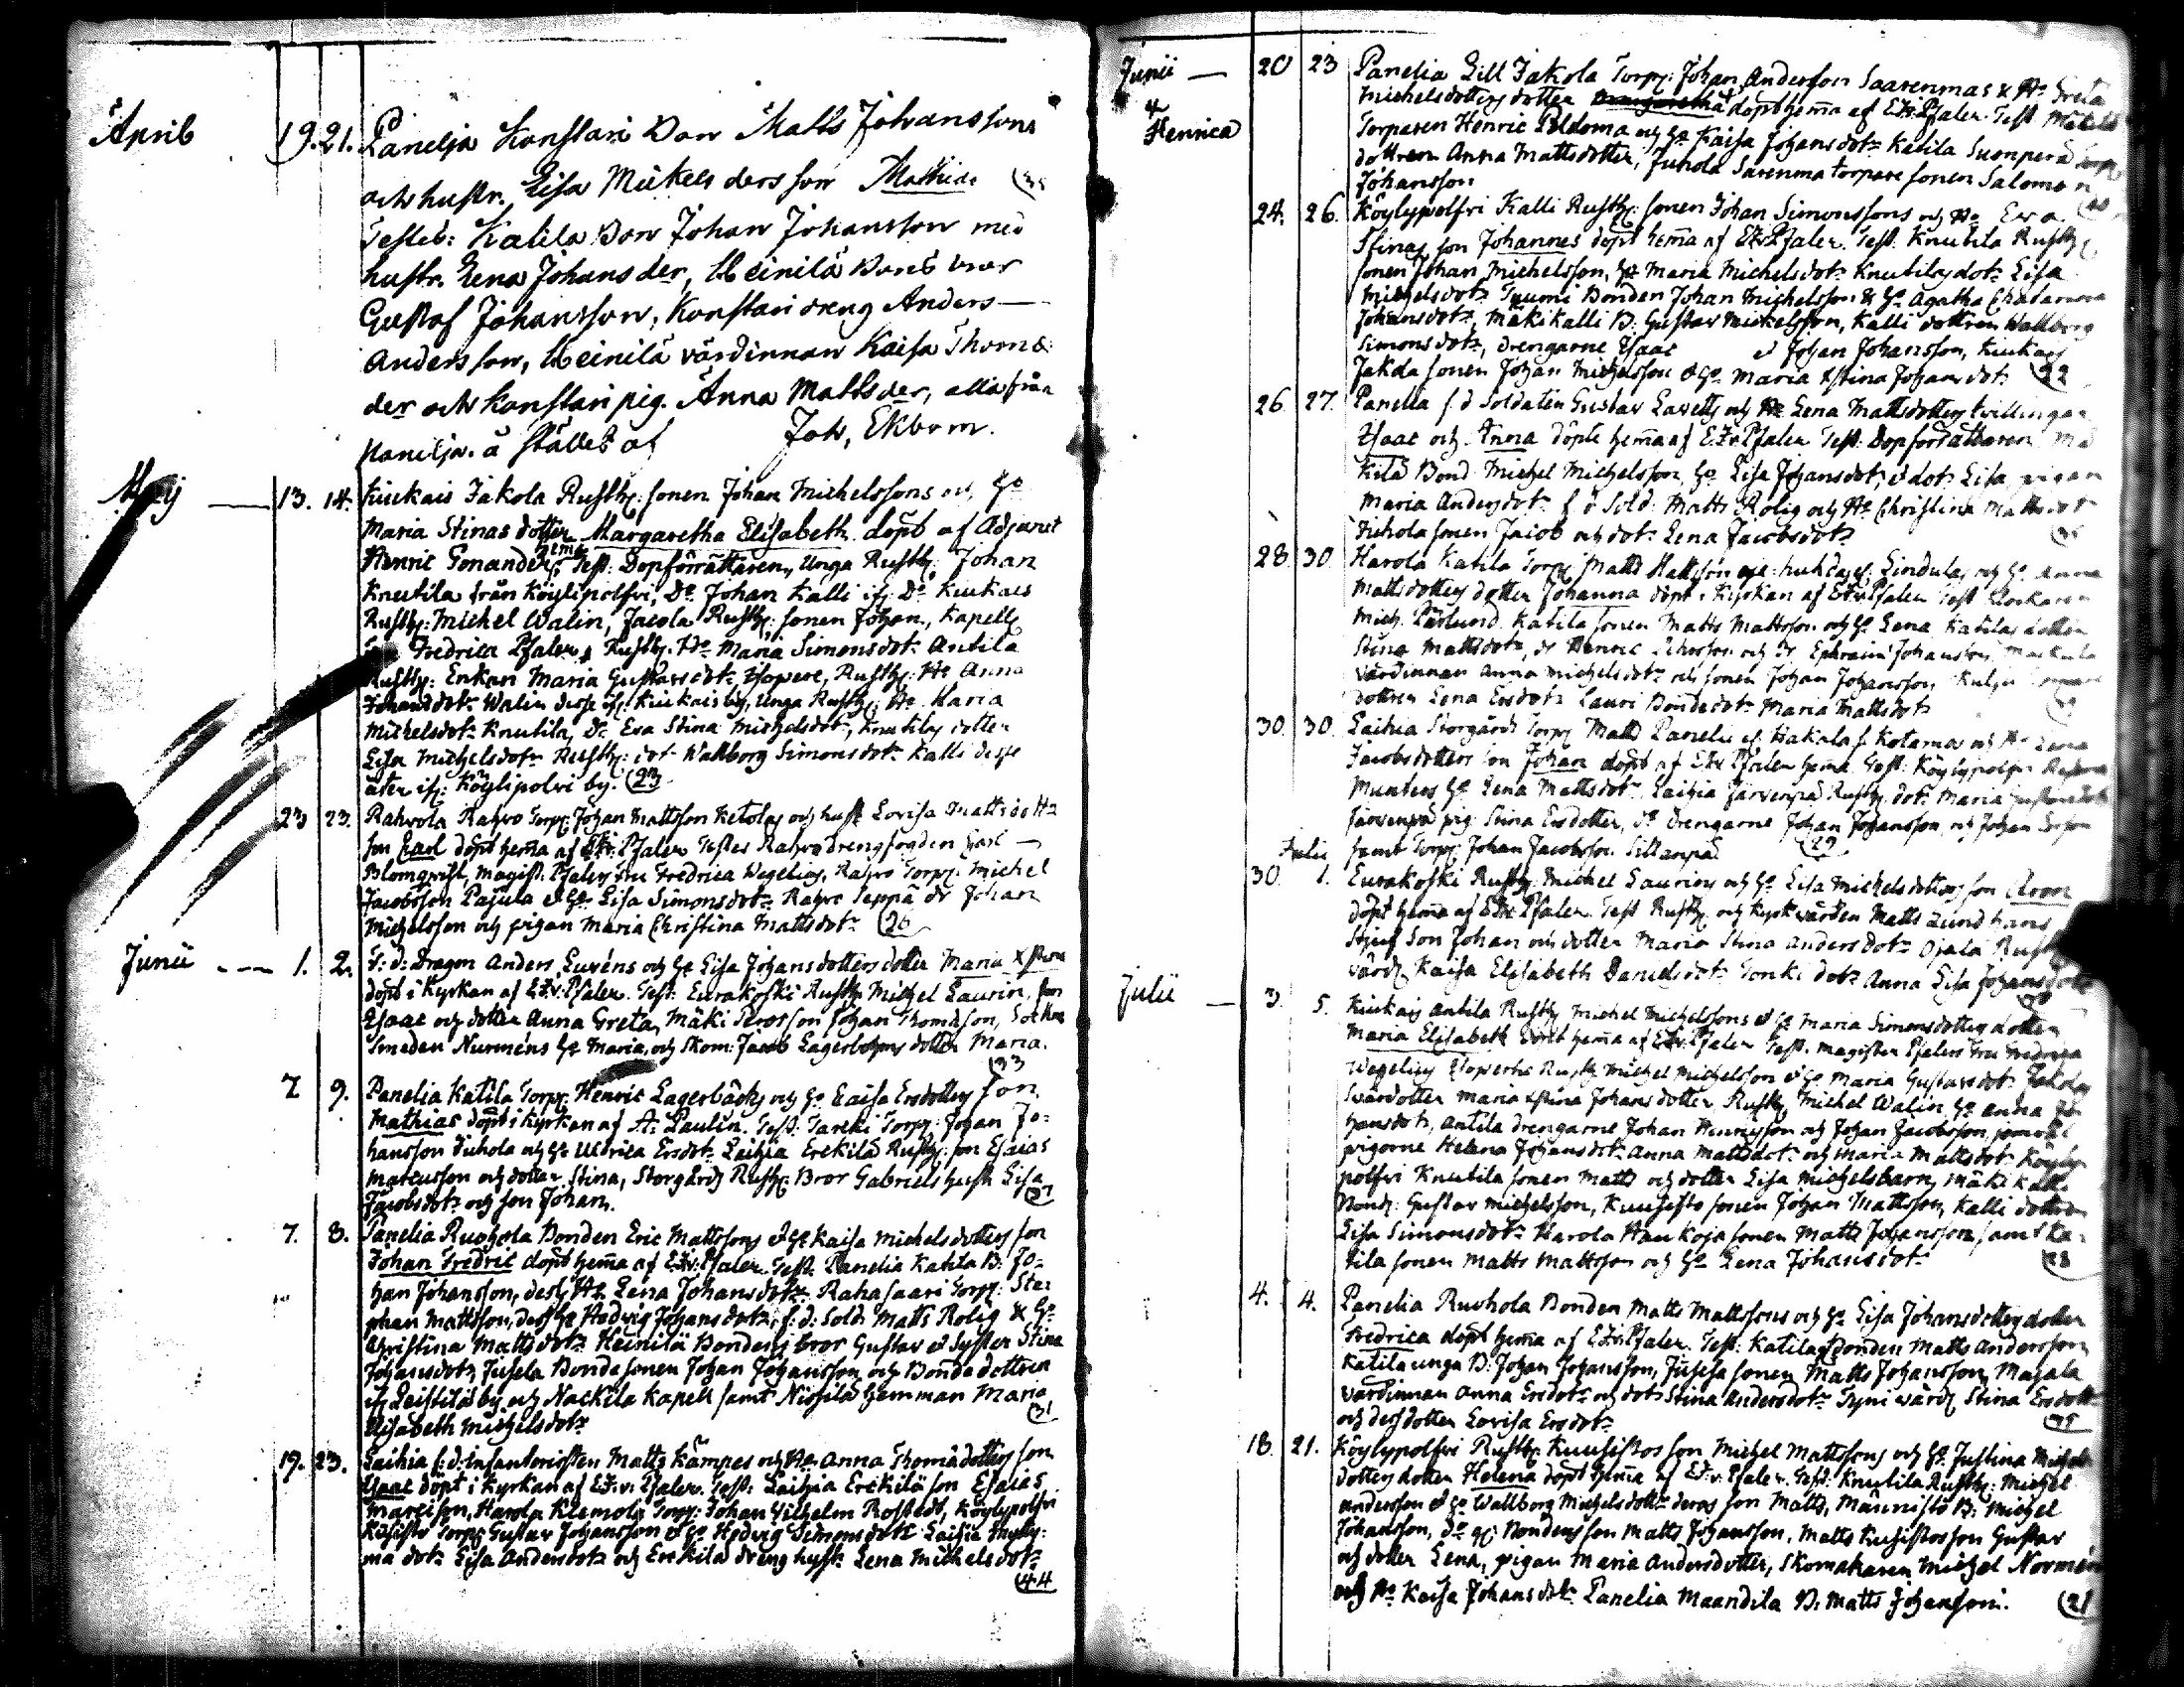 April 19. 21. Panelja Konstari Bon Matts Johanssons
och hustr. Lisa Mickels ders son Mathias
Testes: Katila Bon Johan Johansson med
hustr. Lena Johans der, Heinilä Bons bror
Gustaf Johansson, Konstari dreng Anders
Andersson, Heinilä värdinnan Kaisa Thoms:
der och Konstari pig. Anna Matts der, alla från
Panelja. å stället af Joh, Ekbom.
Maij 13. 14. Kiukais Jakola Rusth: sonen Johan Michelssons och
Maria Stinas dotter Margaretha Elisabeth döpt af Adjunct
Henric Gonander hema, Test: Dopförrättaren, Unga Rusth: Johan
Knutila från Köylipolfri, Do Johan Kalli if: Do Kiukais
Rusth: Michel Walin, Jacola Rusth: sonen Johan, Kapell
Fredrica Pfaler, Rusth. Maria Simonsdotr Antila
Rusth: Enkan Maria Gustavsdotr Rusth: Hu Anna
Johansdotr Walin desse if: Kiukais by, Unga Rusth: Hu Maria
Michelsdotr Knutila, Do Eva Stina Michelsdotr, Knutilas dotter
Lisa Michelsdotr Rusth: dotr Wallborg Simonsdotr Kalli desse
åter if: Köylipolvi by. (23
23 23. Rahvola Rahvo Torp: Johan Mattsson Ketolas och hust Lovisa Mattsdottr
son Carl döpt hema af E.Fv: Pfaler Testes Rahvo drengfogden Carl
Blomqvist, Magist: Pfalers Fru Fredrica Wegelius, Rahvo Torp: Michel
Jacobsson Pajula & Lisa Simonsdotr Rahvo Seppä dr Johan
Michelsson och pigan Maria Christina Mattsdotr (26
Junii 1. 2. F: d: Dragon Anders Luréns och Lisa Johansdotters dotter Maria Xstina
döpt i Kyrkan af E.Fv. Pfaler. Test: Eurakoski Rusth Michel Laurin, son
Esaac och dotter Anna Greta, Mäki son Johan Thomasson, Sockne
Smeden Nurméns Maria, och Skom: Jacob Lagerbohms dotter Maria.
(33
7 9. Panelia Katila Torp: Henric Lagerbäcks och Caisa Ersdotters son
Mathias döpt i Kyrkan af A: Paulin. Test: Tareki Torp: Johan Jo-
hansson Tuhola och Ulrica Ersdotr Laihia Erckilä Rusth: son Esaias
Mateusson och dotter Stina, Storgårds Rusth: Bror Gabriels hust Lisa
Jacobsdotr och son Johan. (27
7. 8. Panelia Ruohola Bonden Eric Mattssons & Kaisa Michelsdotters son
Johan Fredric döpt hema af E.Fv: Pfaler. Test: Panelia Katila B: Jo-
han Johansson, dess Hu Lena Johansdotr Rahasaari Torp: Ste-
phan Mattsson, dess Hedvig Johansdotr, f: d: Sold: Matts Rolig &
Christina Mattsdotr Heinilä Bondens bror Gustav & Syster Stina
Johansdotr, Jusela Bonde sonen Johan Johansson och Bonde dottren
if Leistilä by och Nackila Kapell samt Nissilä hemman Maria
Elisabeth Michelsdotr (31
19. 23. Laihia f: d: Infanteristen Matts Kämpes och Hu Anna Thomädotters son
Isaac döpt i Kyrkan af E.F.v: Pfaler. Test: Laihia Erckilä son Esaias
Harola Klemola Torp: Johan Vilhelm Rostedt, Köylypolfri
Torp: Gustav Johansson & Hedvig Simonsdotr Laihia
dotr Lisa Andersdotr och Erckilä dreng hust: Lena Michelsdotr
(44
Junii 20 23 Panelia Lill Jakola Torp: Johan Andersson Saarenmas & Hu Greta
Henrica
Michelsdotters dotter döpt hema af E.Fv. Pfaler. Test
Torparen Henric Poldoma och Kaisa Johansdotr Katila Suonperä
dottren Anna Mattsdotter, Sarenma torpare sonen Salomon
Johansson
24. 26. Köylypolfri Kalli Rusth: sonen Johan Simonssons och Hu Eva
Stinas son Johannes döpt hema af E.Fv. Pfaler. Test. Knutila Rusth
sonen Johan Michelsson, Maria Michelsdotr Knutilas dotr Lisa
Michelsdotr Tuumi Bonden Johan Michelsson & Agatha
Johansdotr, Mäkikalli B: Gustav Mickelsson, Kalli dottren Wallborg
Simonsdotr, drengarne Isaac & Johan Johansson, Kiukais
Jakola sonen Johan Michelsson & Maria Xstina Johansdotr (22
26 27. Panelia f. d Soldaten Gustav Lavetts och Hu Lena Mattsdotters tvillingar
Isaac och Anna döpte hema af E.Fv. Pfaler Test: Dopförrättaren
Bond. Michel Michelsson, Lisa Johansdotr & dotr Lisa pigan
Maria Andersdotr f. d Sold: Matts Rolig och Hu Christina Mattsdotr
Tuhola sonen Jacob och dotr Lena Jacobsdotr
28 30 Harola Katila Torp: Matts Mattsson och Anna
Mattsdotters dotter Johanna döpt i Kyrkan af E.Fv. Pfaler Test Klockaren
Mich. Katila sonen Matts Mattsson och Lena Katilas dotter
Stina Mattsdotr, dr Henric och dr Ephraim Johansson,
värdinnan Anna Michelsdotr och sonen Johan Johansson
dottren Lena Ersdotr Lauri Bondedotr Maria Mattsdotr
30 30. Laihia Storgårds Torp: Matts Panelii Kotama och Hu Lena
Jacobsdotters son Johan döpt af E.Fv. Pfaler hema Test: Köylypolfri
Munters Lena Mattsdotr, Laihia Järvenpä Rusth. dotr Maria
Järvenpä pig. Stina Ersdotter, Do drengarne Johan Johansson och Johan
samt Torp: Johan Jacobsson Sillanpää (29
Julii
30 1. Eurakoski Rusth: Michel Laurins och Lisa Michelsdotters son Aron
döpt hema af E.Fv. Pfaler. Test Rusth: och Kyrkvärden Matts Lund hans
Stjuf Son Johan och dotter Maria Stina Andersdotr Ojala
värd: Kaisa Elisabeth Danielsdotr Sonki dotr Anna Lisa Johansdotr
Julii 3. 5. Kiukais Antila Rusth Michel Michelssons & Maria Simonsdotters dotter
Maria Elisabeth döpt hema af E.Fv. Pfaler Test. Magister Pfalers Fru Fredrica
Wegelius Rusth Michel Michelsson & Maria Gustavsdotr Jakolas
Svärdotter Maria Xstina Johansdotter, Rusth Michel Walin, Anna Jo
hansdotr, Antila drengarne Johan Henricsson och Johan Jacobsson,
pigorne Helena Johansdotr Anna Mattsdotr och Maria Mattsdotr Köyly-
polfri Knutila sonen Matts och dotter Lisa Michelsbarn, Mäki Kalli
Bond: Gustav Michelsson, Kuusisto sonen Johan Mattsson, Kalli dottren
Lisa Simonsdotr Harola Haukoja sonen Matts Johansson samt Ka-
tila sonen Matts Mattsson och Lena Johansdotr (28
4. 4. Panelia Ruohola Bonden Matts Mattssons och Lisa Johansdotters dotter
Fredrica döpt hema af E.Fv. Pfaler. Test: Katila Bonden Matts Andersson
Katila unga B: Johan Johansson, Jusela sonen Matts Johansson, Majala
värdinnan Anna Ersdotr och dotr Stina Andersdotr Tyni värd: Stina Ersdotr
och dess dotter Lovisa Ersdotr (35
18. 21. Köylypolfri Rusth: Kuusistos son Michel Mattssons och Justina Michels
dotters dotter Helena döpt hema af E.Fv. Pfaler. Test: Knutila Rusth: Michel
Andersson & Wallborg Michelsdotr deras son Matts, Männistö B: Michel
Johansson, Bondens son Matts Johansson, Matts Kuusistos son Gustav
och dotter Lena, pigan Maria Andersdotter, Skomakaren Michel Normén
och Hu Kaisa Johansdotr Panelia Maandila B. Matts Johansson. (21